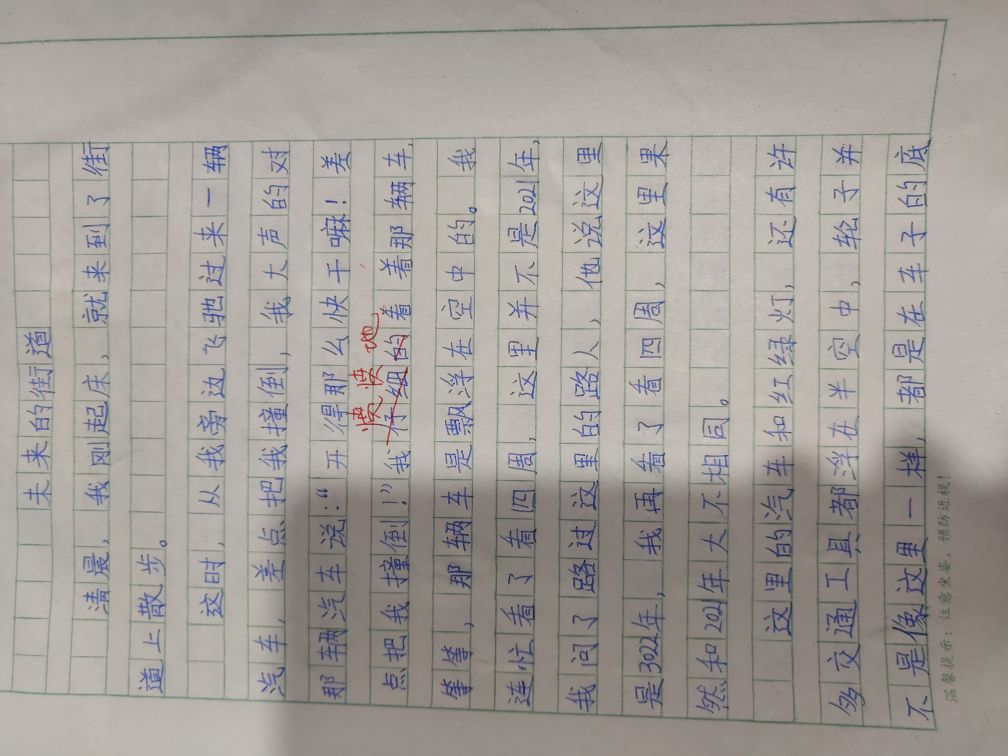 未来的街道
清晨，我刚起床，就来到了街
道上散步。
这时，从我旁边飞驰过来一辆
汽车，差点把我撞倒，我大声的对
那辆汽车说：“开得那么快干嘛！差
愤愤地
点把我撞倒！”我仔细的看着那辆车，
等等，那辆车是飘浮在空中的。我
连忙看了看四周，这里并不是2021年，
我问了路过这里的路人，他说这里
是3022年，我再看了看四周，这里果
然和2021年大不相同。
这里的汽车和红绿灯，还有许
多交通工具都浮在半空中，轮子并
不是像这里一样，都是在车子的底
温馨提示：注意坐姿，预防近视！